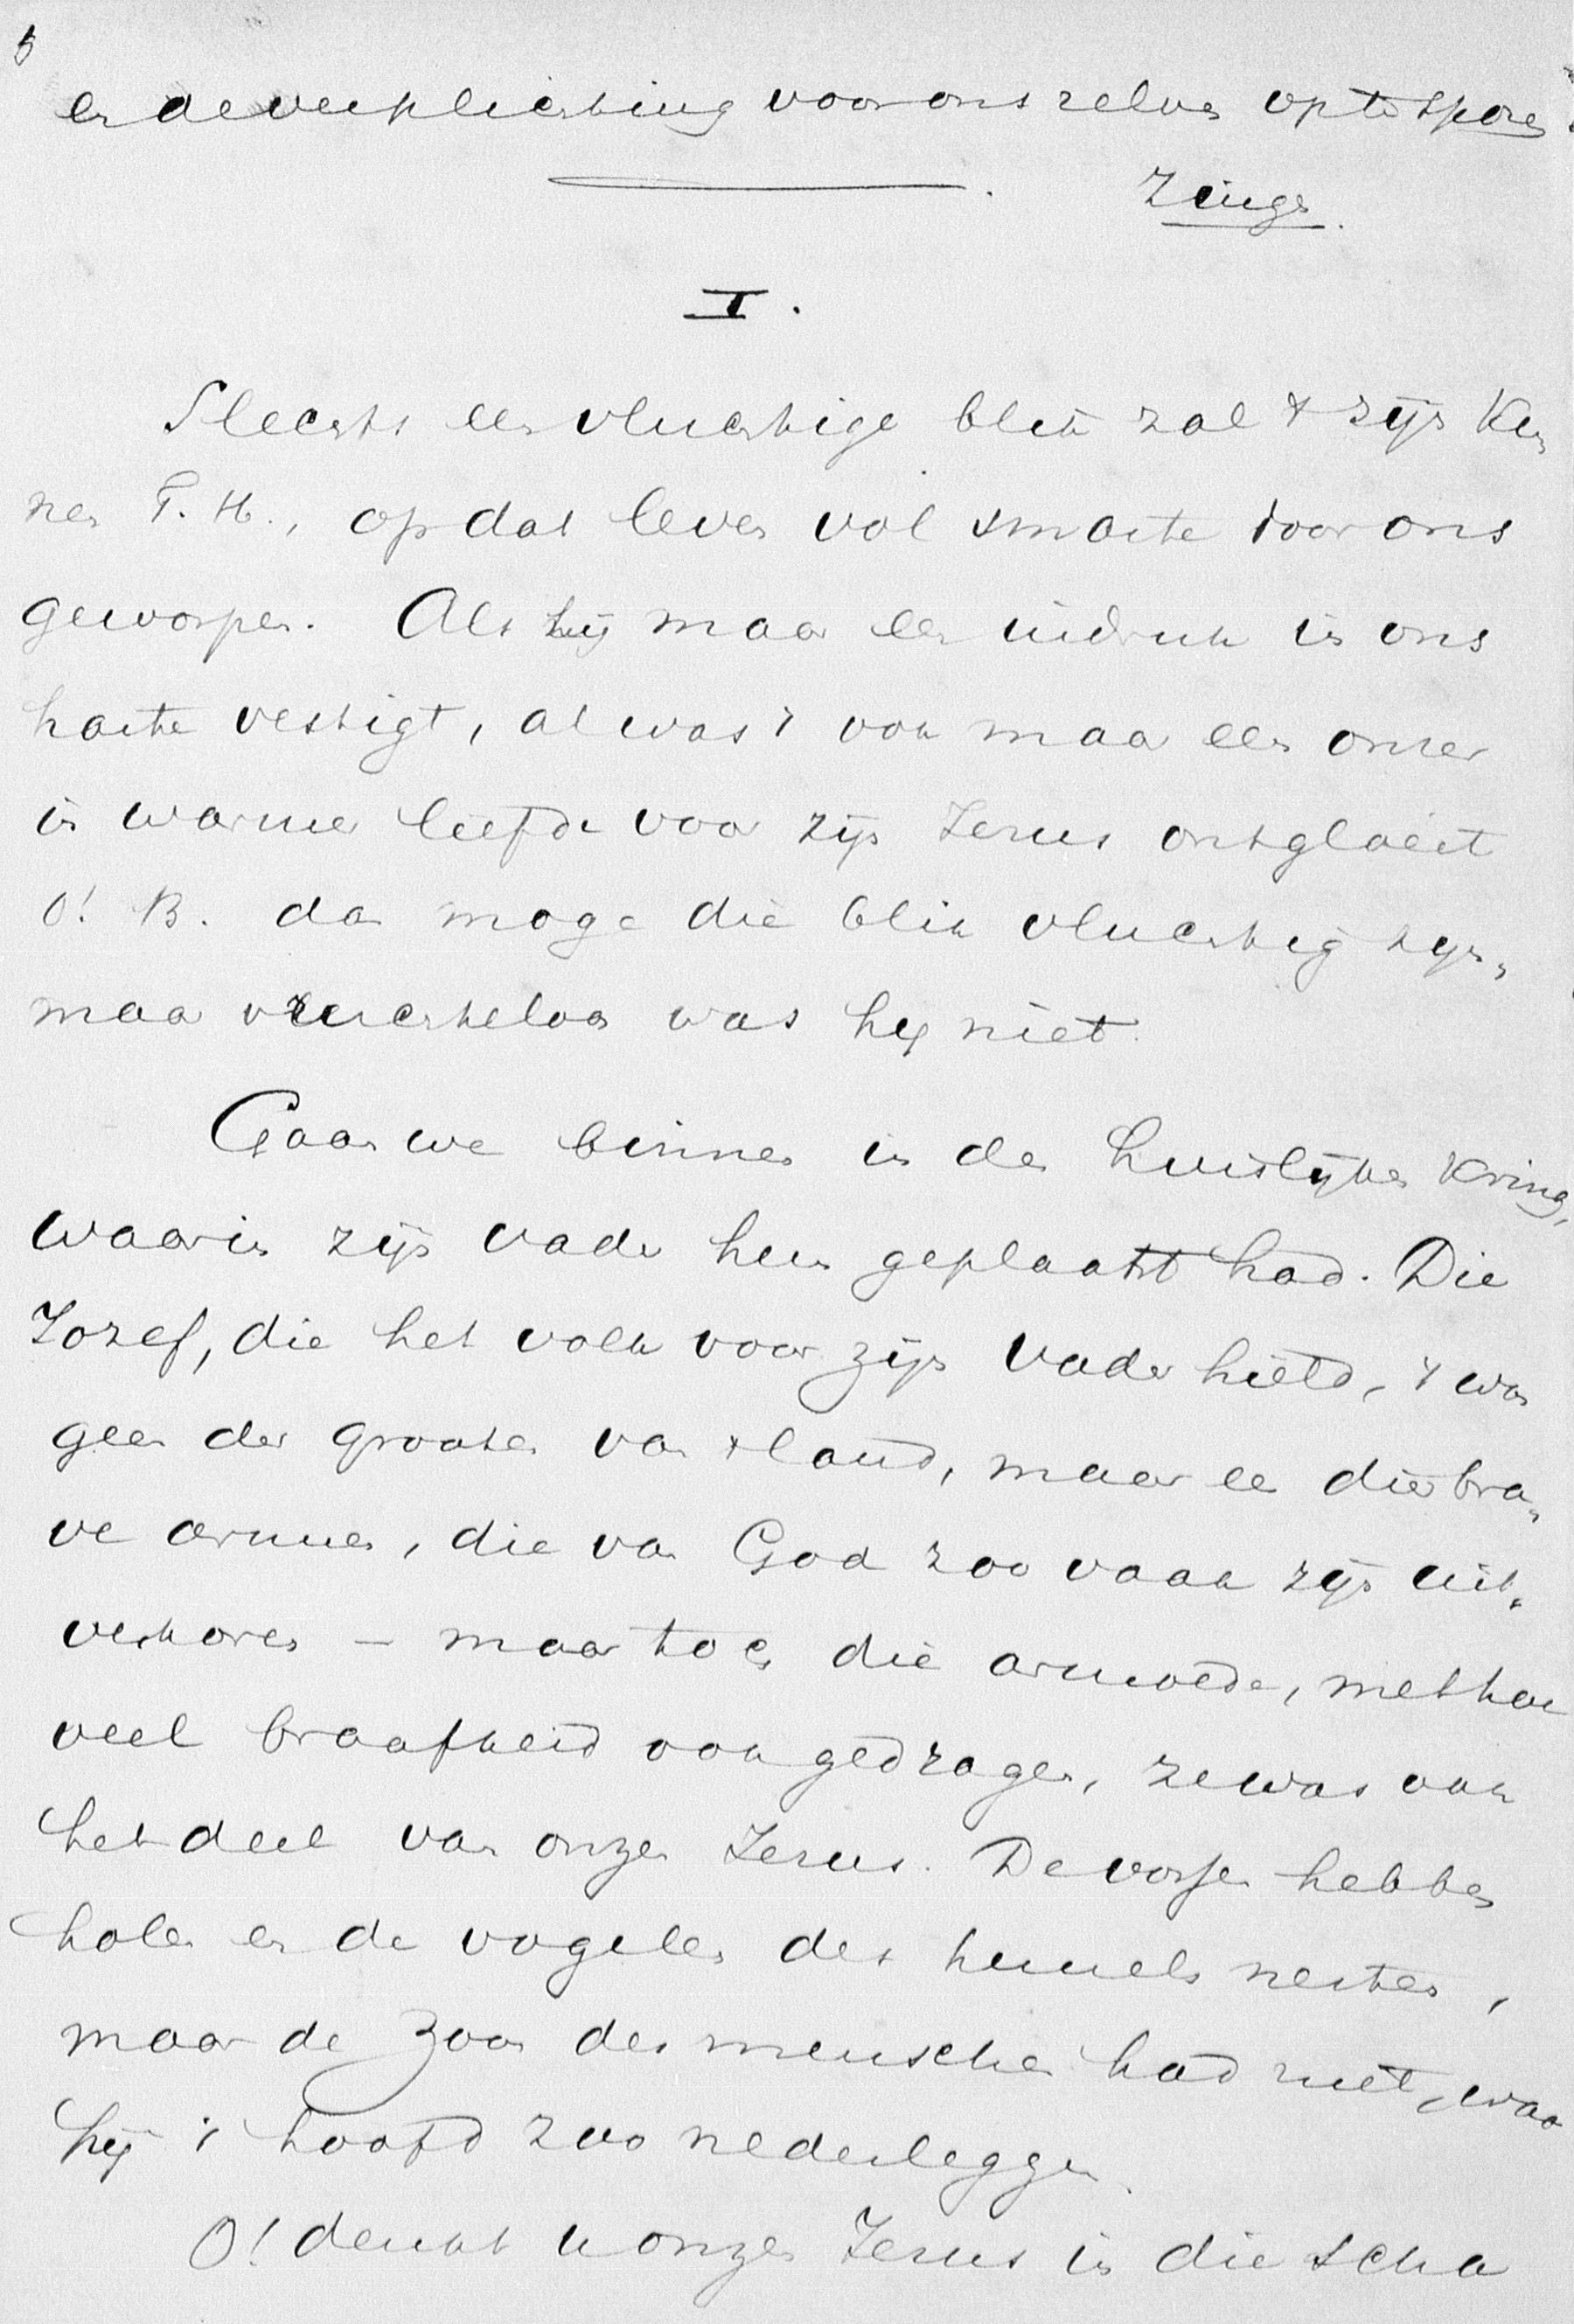 5
en de verplichting voor ons zelven op te sporen.
Zings.
I.
Slechts een vluchtige blik zal 't zijn kun
nen T. H., op dat leven vol smarte door ons
geworpen. Als hij maar een indruk in ons
harte vestigt, al was 't ook maar een onzer
in warmer liefde voor zijn Jezus ontgloeit
O! B. dan moge die blik vluchtig zijn,
maar vruchteloos was hij niet.
Gaan we binnen in den huislijken kring,
waarin zijn vader hem geplaatst had. Die
Jozef, die het volk voor zijn vader hield, 't was
geen der grooten van 't land, maar een dier bra-
ve armen, die van God zoo vaak zijn uit-
verkoren – maar toch die armoede, met hoe
veel braafheid ook gedragen, ze was ook
het deel van onzen Jezus. De vossen hebben
holen en de vogelen des hemels nesten,
maar de Zoon des menschen had niet, waar
hij 't hoofd zoo nederleggen.
O! denkt u onzen Jezus in die scha